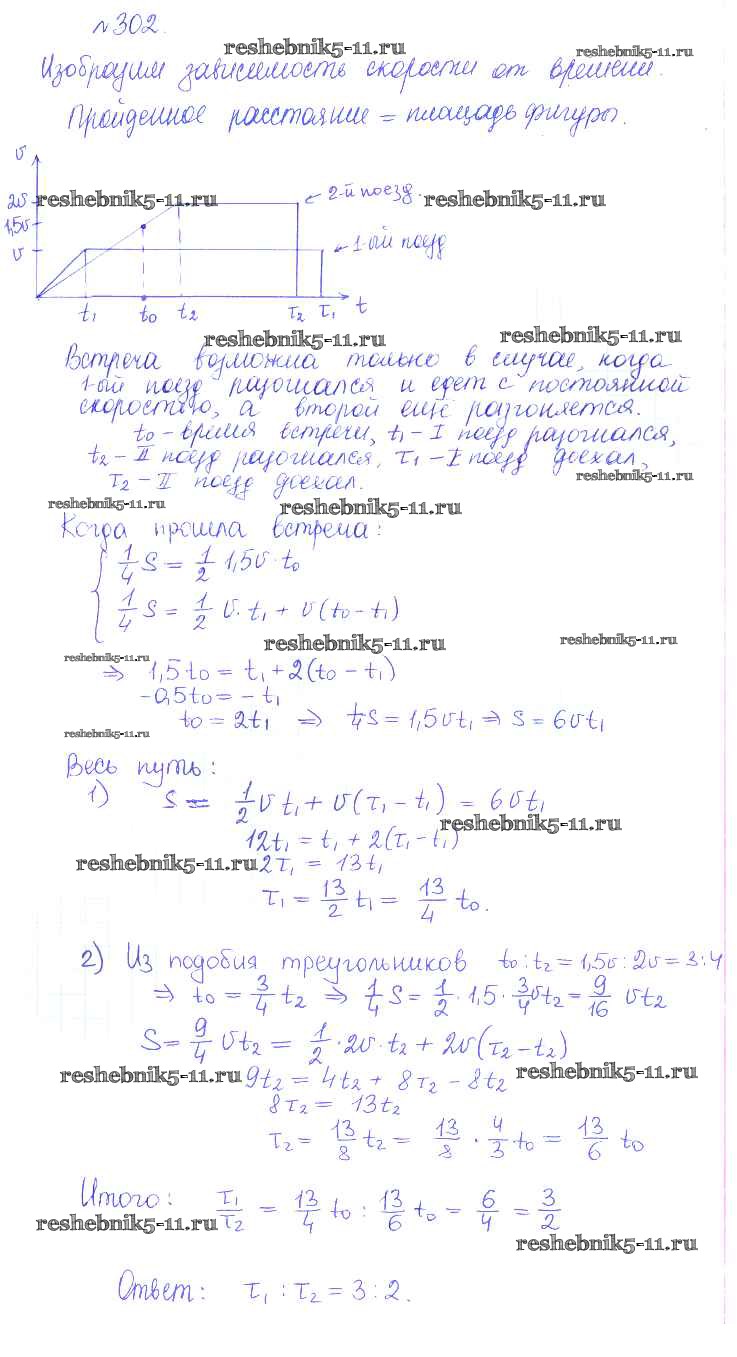 №302.
reshebnik5-11.ru
reshebnik5-11.ru
Изобразим зависимость скорости от времени.
Пройденное расстояние = площадь фигуры.
v
2v
reshebnik5-11.ru
2-й поезд.
reshebnik5-11.ru
1,5v
v
1-ый поезд
t₁ t₀ t₂ τ₂ τ₁ t
reshebnik5-11.ru
reshebnik5-11.ru
Встреча возможна только в случае, когда
1-ый поезд разогнался и едет с постоянной
скоростью, а второй ещё разгоняется.
t₀ - время встречи, t₁ - I поезд разогнался,
t₂ - II поезд разогнался, τ₁ - I поезд доехал,
reshebnik5-11.ru
τ₂ - II поезд доехал.
reshebnik5-11.ru
reshebnik5-11.ru
Когда прошла встреча:
1/4 S = 1/2 1,5v · t₀
1/4 S = 1/2 v · t₁ + v(t₀ - t₁)
reshebnik5-11.ru
reshebnik5-11.ru
reshebnik5-11.ru
⇒ 1,5t₀ = t₁ + 2(t₀ - t₁)
-0,5t₀ = - t₁
t₀ = 2t₁ ⇒ 1/4 S = 1,5vt₁ ⇒ S = 6vt₁
reshebnik5-11.ru
Весь путь:
1) S = 1/2 vt₁ + v(τ₁ - t₁) = 6vt₁
reshebnik5-11.ru
12t₁ = t₁ + 2(τ₁ - t₁)
reshebnik5-11.ru
2τ₁ = 13t₁
τ₁ = 13/2 t₁ = 13/4 t₀.
2) Из подобия треугольников t₀ : t₂ = 1,5v : 2v = 3:4
⇒ t₀ = 3/4 t₂ ⇒ 1/4 S = 1/2 · 1,5 · 3/4 vt₂ = 9/16 vt₂
S = 9/4 vt₂ = 1/2 · 2v · t₂ + 2v(τ₂ - t₂)
reshebnik5-11.ru
9t₂ = 4t₂ + 8τ₂ - 8t₂
reshebnik5-11.ru
8τ₂ = 13t₂
τ₂ = 13/8 t₂ = 13/8 · 4/3 t₀ = 13/6 t₀
Итого: τ₁/τ₂ = 13/4 t₀ : 13/6 t₀ = 6/4 = 3/2
reshebnik5-11.ru
reshebnik5-11.ru
Ответ: τ₁ : τ₂ = 3 : 2.